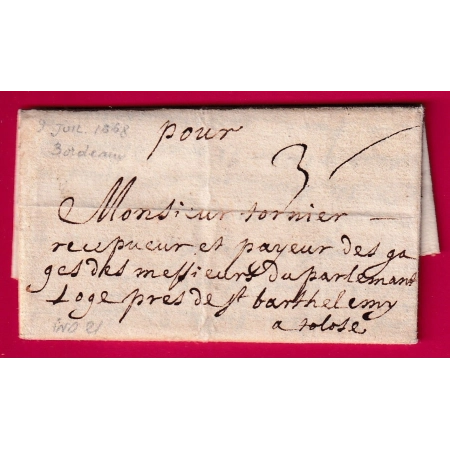 9 Juil. 1668
Bordeaux
pour
3
Monsieur tornier
recepueur et payeur des ga
ges des messieurs du parlemant
Loge pres de st barthelemy
a tolose
IND 21